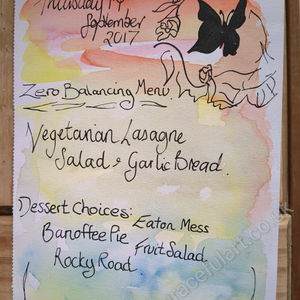 Thursday 14
September
2017
Zero Balancing Menu.
Vegetarian Lasagne
Salad & Garlic Bread.
Dessert Choices:
Eaton Mess
Banoffee Pie
Fruit Salad.
Rocky Road.
racefulart.co.uk